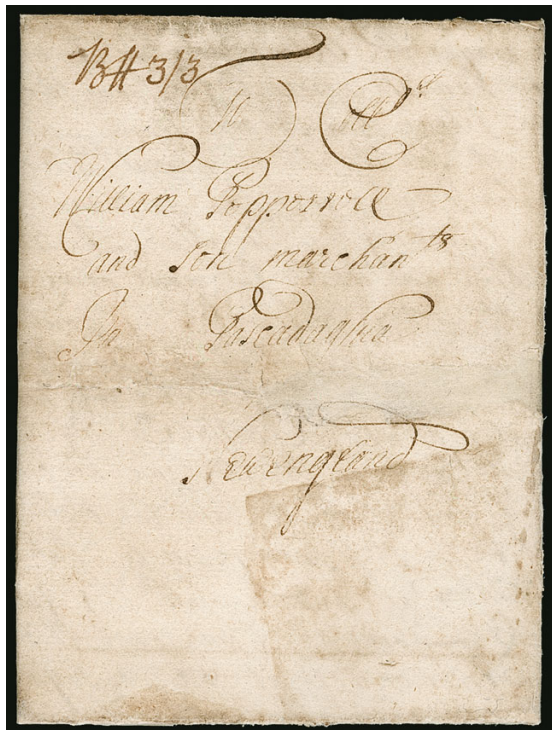 B# 3/3
To Coll
William Pepperrell
and son marchants
In Pascadaqua
Newengland